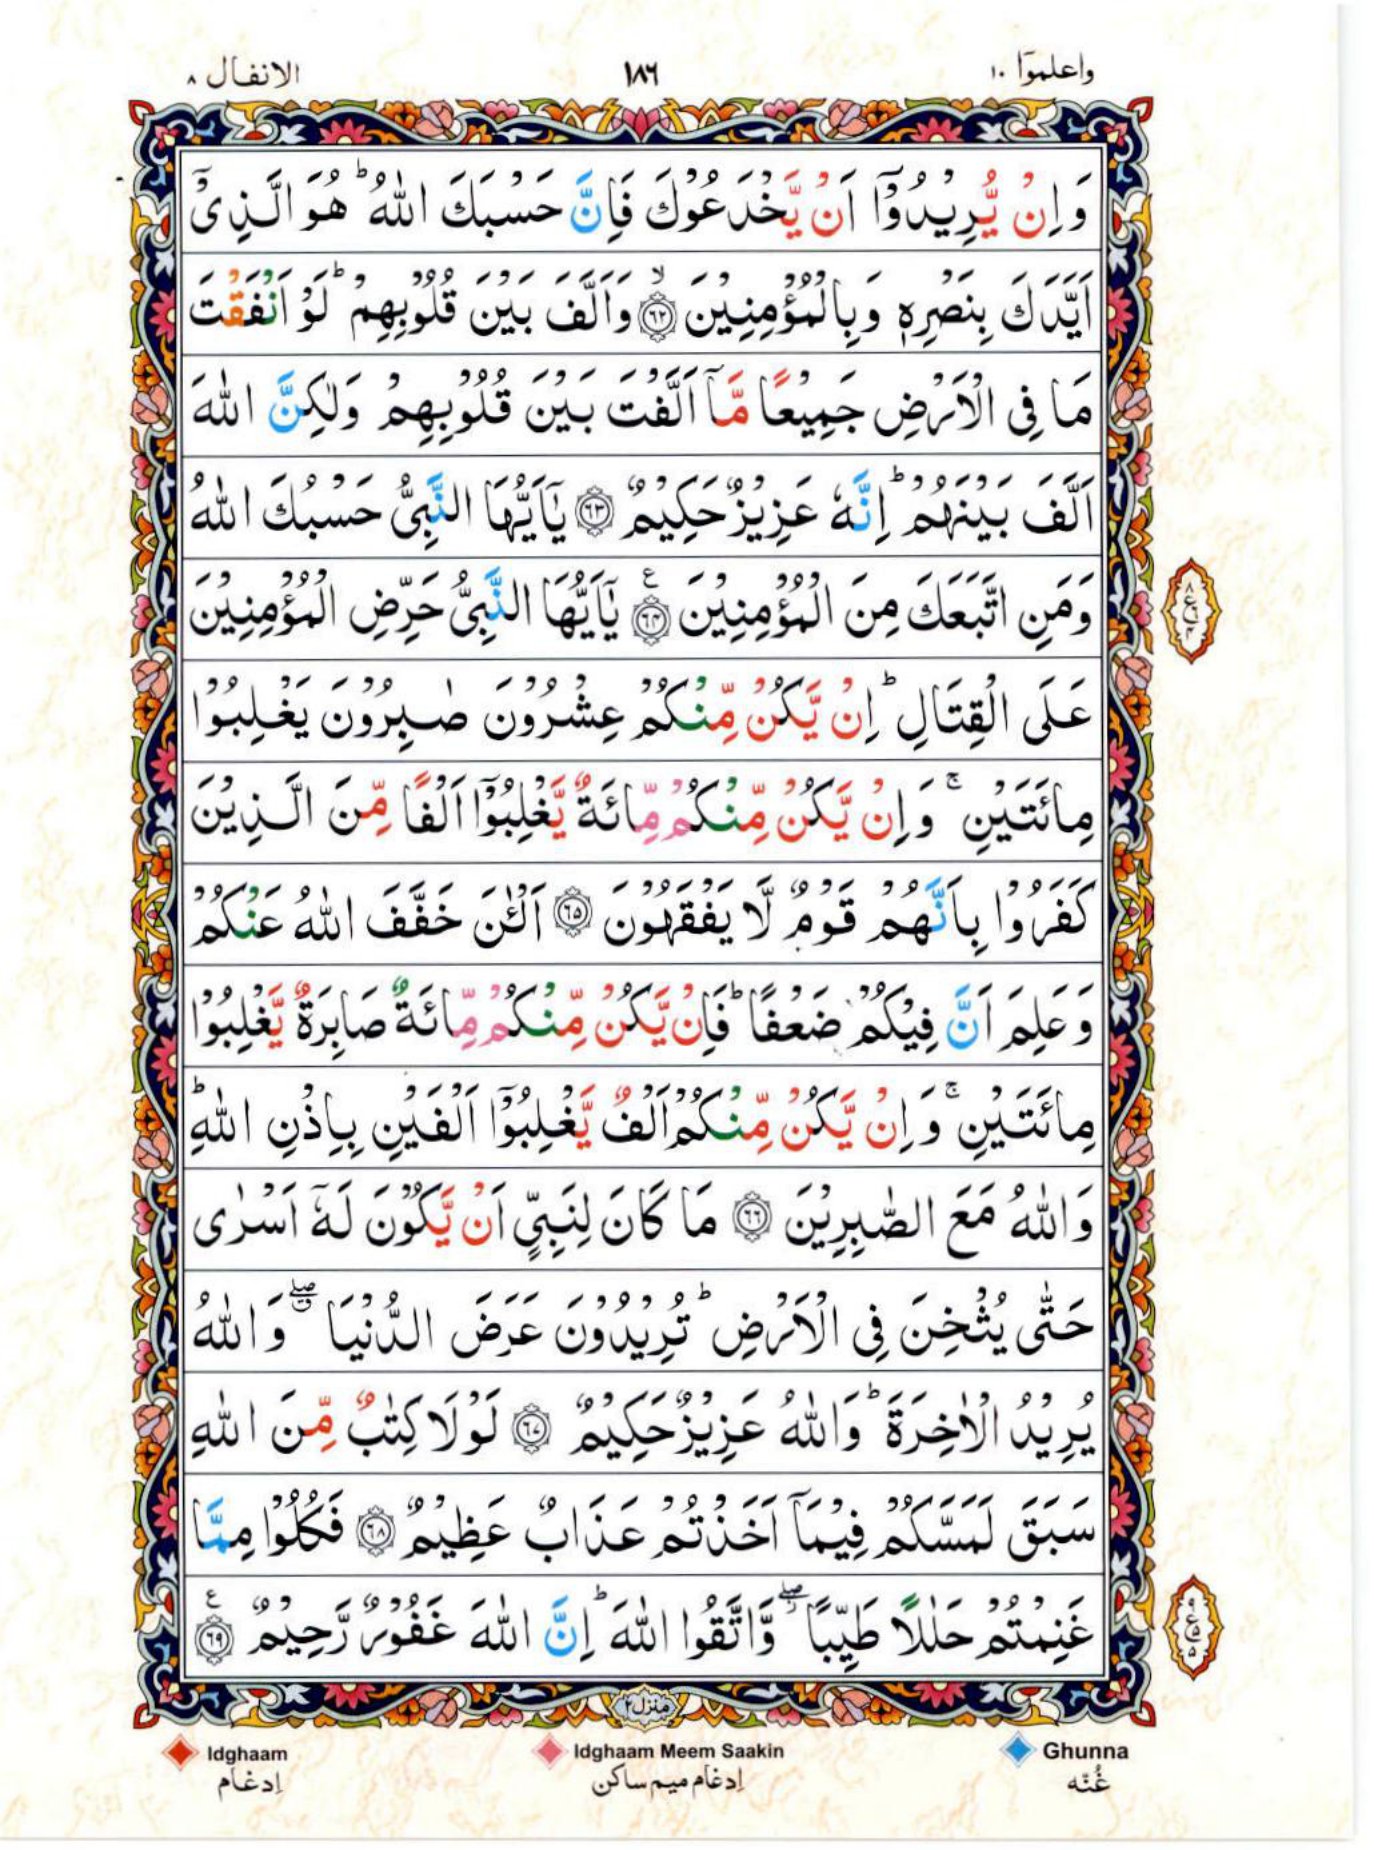 واعلموٓا ١٠
١٨٦
الانفال ٨
وَاِنْ يُّرِيْدُوْٓا اَنْ يَّخْدَعُوْكَ فَاِنَّ حَسْبَكَ اللّٰهُ ؕ هُوَ الَّذِىْٓ
اَيَّدَكَ بِنَصْرِهٖ وَبِالْمُؤْمِنِيْنَ ۙ﴿۶۲﴾ وَاَلَّفَ بَيْنَ قُلُوْبِهِمْ ؕ لَوْ اَنْفَقْتَ
مَا فِى الْاَرْضِ جَمِيْعًا مَّاۤ اَلَّفْتَ بَيْنَ قُلُوْبِهِمْ وَلٰكِنَّ اللّٰهَ
اَلَّفَ بَيْنَهُمْ ؕ اِنَّهٗ عَزِيْزٌ حَكِيْمٌ ﴿۶۳﴾ يٰۤاَيُّهَا النَّبِىُّ حَسْبُكَ اللّٰهُ
وَمَنِ اتَّبَعَكَ مِنَ الْمُؤْمِنِيْنَ ﴿۶۴﴾ ع يٰۤاَيُّهَا النَّبِىُّ حَرِّضِ الْمُؤْمِنِيْنَ
عَلَى الْقِتَالِ ؕ اِنْ يَّكُنْ مِّنْكُمْ عِشْرُوْنَ صٰبِرُوْنَ يَغْلِبُوْا
مِائَتَيْنِ ۚ وَاِنْ يَّكُنْ مِّنْكُمْ مِّائَةٌ يَّغْلِبُوْۤا اَلْفًا مِّنَ الَّذِيْنَ
كَفَرُوْا بِاَنَّهُمْ قَوْمٌ لَّا يَفْقَهُوْنَ ﴿۶۵﴾ اَلْئٰنَ خَفَّفَ اللّٰهُ عَنْكُمْ
وَعَلِمَ اَنَّ فِيْكُمْ ضَعْفًا ؕ فَاِنْ يَّكُنْ مِّنْكُمْ مِّائَةٌ صَابِرَةٌ يَّغْلِبُوْا
مِائَتَيْنِ ۚ وَاِنْ يَّكُنْ مِّنْكُمْ اَلْفٌ يَّغْلِبُوْۤا اَلْفَيْنِ بِاِذْنِ اللّٰهِ ؕ
وَاللّٰهُ مَعَ الصّٰبِرِيْنَ ﴿۶۶﴾ مَا كَانَ لِنَبِىٍّ اَنْ يَّكُوْنَ لَهٗۤ اَسْرٰى
حَتّٰى يُثْخِنَ فِى الْاَرْضِ ؕ تُرِيْدُوْنَ عَرَضَ الدُّنْيَا ۖ وَاللّٰهُ
يُرِيْدُ الْاٰخِرَةَ ؕ وَاللّٰهُ عَزِيْزٌ حَكِيْمٌ ﴿۶۷﴾ لَوْلَا كِتٰبٌ مِّنَ اللّٰهِ
سَبَقَ لَمَسَّكُمْ فِيْمَاۤ اَخَذْتُمْ عَذَابٌ عَظِيْمٌ ﴿۶۸﴾ فَكُلُوْا مِمَّا
غَنِمْتُمْ حَلٰلًا طَيِّبًا ۖ وَّاتَّقُوا اللّٰهَ ؕ اِنَّ اللّٰهَ غَفُوْرٌ رَّحِيْمٌ ﴿۶۹﴾ ع
منزل ٢
Ghunna
Idghaam Meem Saakin
Idghaam
غُنّه
اِدغام ميم ساكن
اِدغام